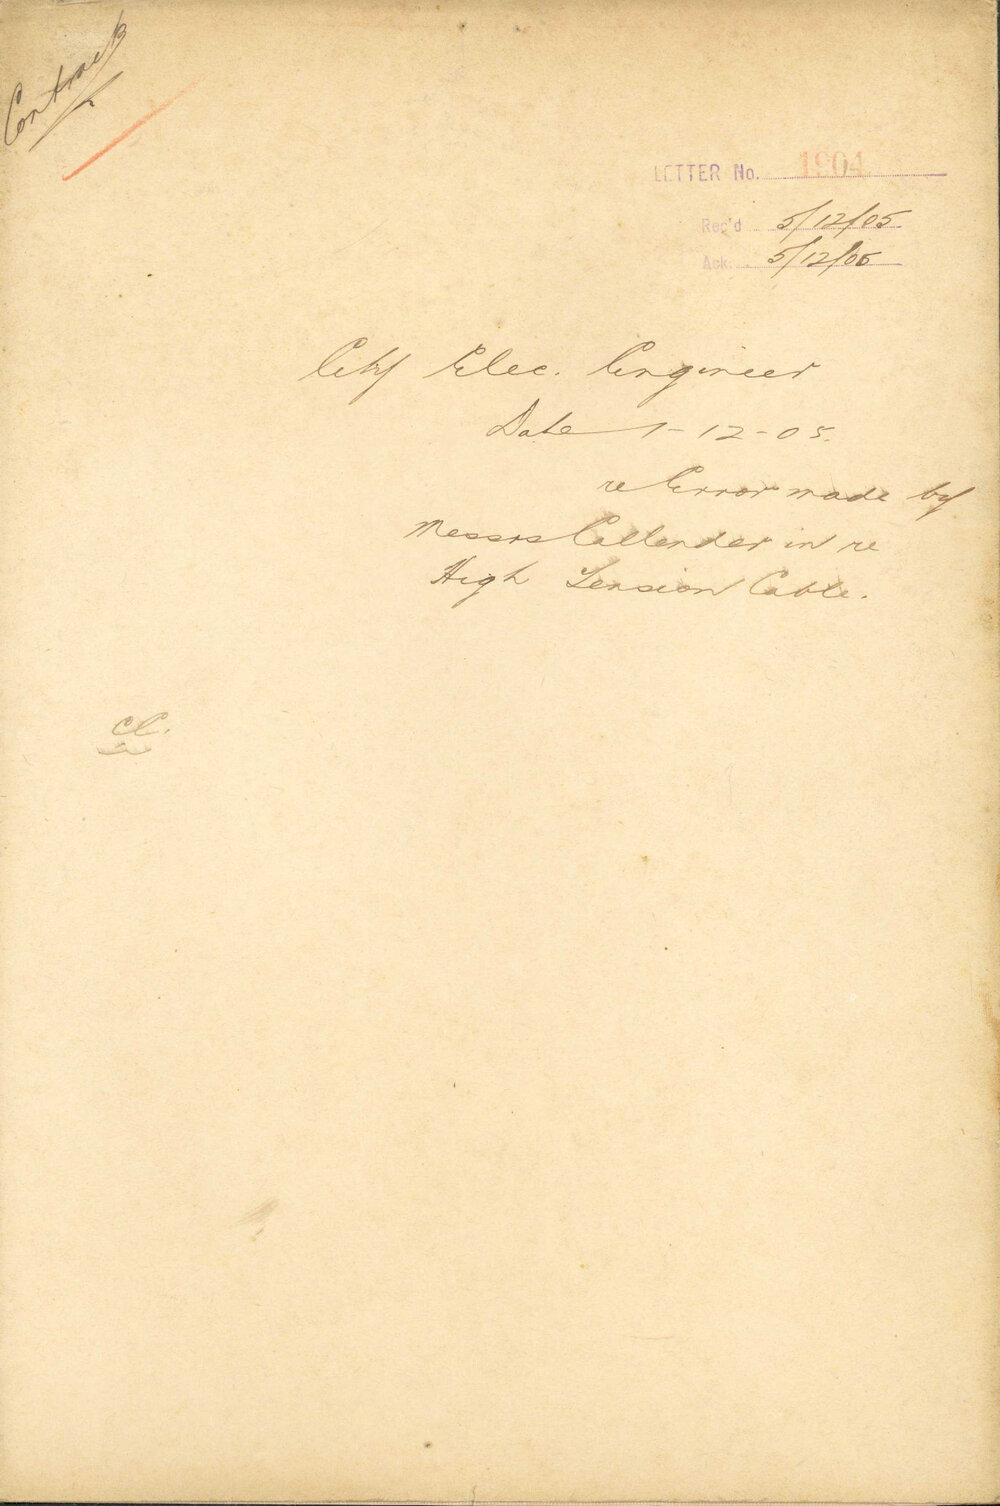 Contract
LETTER No. 1904
Rec'd 5/12/05
Ack. 5/12/05
City Elec. Engineer
Date 1-12-05.
re Error made by
Messrs Callender in re
High Tension Cable.